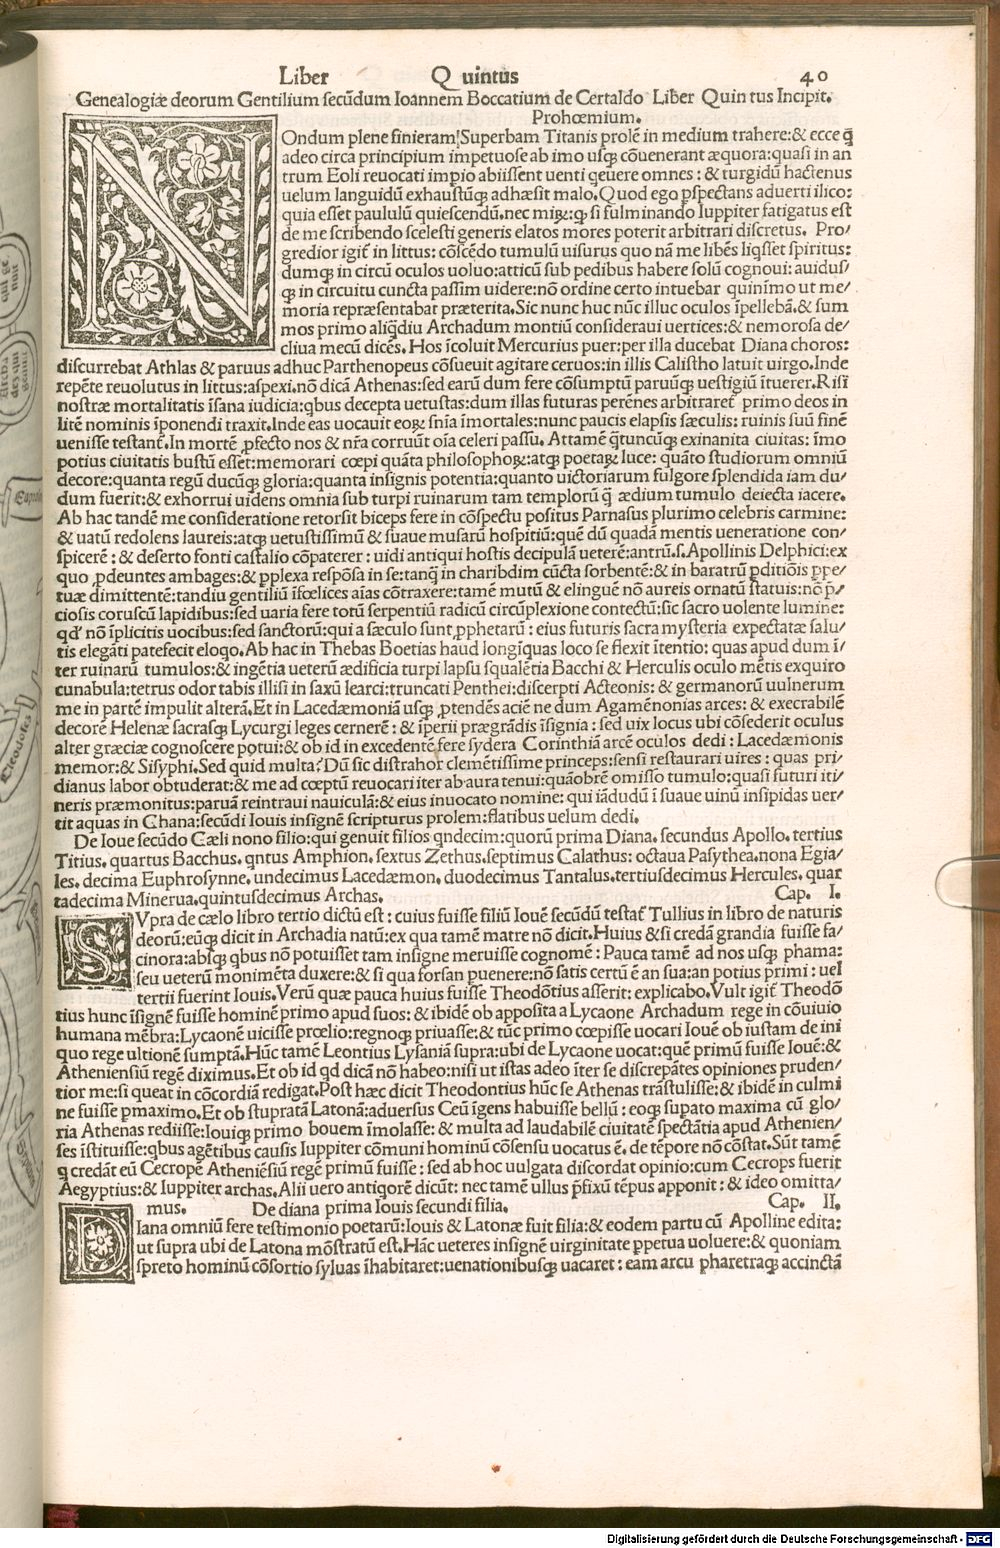 Liber Quintus 40
Genealogiæ deorum Gentilium secūdum Ioannem Boccatium de Certaldo Liber Quin tus Incipit.
Prohœmium.
NOndum plene finieram: Superbam Titanis prolē in medium trahere:& ecce q̄
adeo circa principium impetuose ab imo usq; cōuenerant æquora:quasi in an
trum Eoli reuocati impio abiissent uenti qeuere omnes : & turgidū hactenus
uelum languidū exhaustūq; adhæsit malo. Quod ego ꝑspectans aduerti ilico:
quia esset paululū quiescendū.nec miꝝ:ꝙ si fulminando Iuppiter fatigatus est
de me scribendo scelesti generis elatos mores poterit arbitrari discretus. Pro/
gredior igiť in littus: cōscēdo tumulū uisurus quo nā me libēs liqsset spiritus:
dumq; in circū oculos uoluo:atticū sub pedibus habere solū cognoui: auidus/
q; in circuitu cuncta passim uidere:nō ordine certo intuebar quinīmo ut me/
moria repræsentabat præterita. Sic nunc huc nūc illuc oculos īpellebā.& sum
mos primo aliqdiu Archadum montiū consideraui uertices:& nemorosa de/
cliua mecū dicēs. Hos īcoluit Mercurius puer:per illa ducebat Diana choros:
discurrebat Athlas & paruus adhuc Parthenopeus cōsueuit agitare ceruos:in illis Calistho latuit uirgo. Inde
repēte reuolutus in littus:aspexi.nō dicā Athenas:sed earū dum fere cōsumptū paruūq; uestigiū ītuerer. Risi
nostræ mortalitatis īsana iudicia:qbus decepta uetustas:dum illas futuras perēnes arbitrareť primo deos in
litē nominis īponendi traxit. Inde eas uocauit eoꝝ sn̄ia īmortales:nunc paucis elapsis sæculis: ruinis suū finē
uenisse testanť. In mortē ꝓfecto nos & nr̄a corruūt oīa celeri passu. Attamē q̄tuncūq; exinanita ciuitas: īmo
potius ciuitatis bustū esset:memorari cœpi quāta philosophoꝝ:atq; poetaꝝ luce: quāto studiorum omniū
decore:quanta regū ducūq; gloria:quanta insignis potentia:quanto uictoriarum fulgore splendida iam du/
dum fuerit:& exhorrui uidens omnia sub turpi ruinarum tam templorū q̄ ædium tumulo deiecta iacere.
Ab hac tandē me consideratione retorsit biceps fere in cōspectu positus Parnasus plurimo celebris carmine:
& uatū redolens laureis:atq; uetustissimū & suaue musarū hospitiū:quē dū quadā mentis ueneratione con/
spicerē : & deserto fonti castalio cōpaterer : uidi antiqui hostis decipulā ueterē:antrū.s. Apollinis Delphici:ex
quo ꝓdeuntes ambages:& ꝑplexa respōsa in se:tanq̄ in charibdim cūcta sorbentē:& in baratrū ꝑditiōis ꝑpe/
tuæ dimittentē:tandiu gentiliū īfœlices aīas cōtraxere:tamē mutū & elinguē nō aureis ornatū statuis:nō p̄/
ciosis coruscū lapidibus:sed uaria fere totū serpentiū radicū circūplexione contectū:sic sacro uolente lumine:
qd' nō īplicitis uocibus:sed sanctorū:qui a sæculo sunt ꝓphetarū : eius futuris sacra mysteria expectatæ salu/
tis elegāti patefecit eloqo. Ab hac in Thebas Boetias haud longīquas loco se flexit ītentio: quas apud dum ī/
ter ruinarū tumulos:& ingētia ueterū ædificia turpi lapsu squalētia Bacchi & Herculis oculo mētis exquiro
cunabula:tetrus odor tabis illisi in saxū learci:truncati Penthei:discerpti Acteonis: & germanorū uulnerum
me in partē impulit alterā. Et in Lacedæmoniā usq; ꝓtendēs aciē ne dum Agamēnonias arces: & execrabilē
decorē Helenæ sacrasq; Lycurgi leges cernerē : & īperii prægrādis īsignia : sed uix locus ubi cōsederit oculus
alter græciæ cognoscere potui:& ob id in excedentē fere sydera Corinthiā arcē oculos dedi : Lacedæmonis
memor:& Sisyphi. Sed quid multa? Dū sic distrahor clemētissime princeps:sensi restaurari uires : quas pri/
dianus labor obtuderat:& me ad cœptū reuocari iter ab aura tenui:quāobrē omisso tumulo:quasi futuri iti/
neris præmonitus:paruā reintraui nauiculā:& eius inuocato nomine: qui iādudū ī suaue uinū insipidas uer/
tit aquas in Chana:secūdi Iouis insignē scripturus prolem:flatibus uelum dedi.
De Ioue secūdo Cæli nono filio:qui genuit filios qndecim:quorū prima Diana. secundus Apollo. tertius
Titius. quartus Bacchus. qntus Amphion. sextus Zethus.septimus Calathus: octaua Pasythea.nona Egia/
les. decima Euphrosynne. undecimus Lacedæmon. duodecimus Tantalus.tertiusdecimus Hercules. quar
tadecima Minerua.quintusdecimus Archas. Cap. I.
SVpra de cælo libro tertio dictū est : cuius fuisse filiū Iouē secūdū testať Tullius in libro de naturis
deorū:eūq; dicit in Archadia natū:ex qua tamē matre nō dicit. Huius & si credā grandia fuisse fa/
cinora:absq; qbus nō potuisset tam insigne meruisse cognomē : Pauca tamē ad nos usq; phama:
seu ueterū monimēta duxere:& si qua forsan puenere:nō satis certū ē an sua:an potius primi : uel
tertii fuerint Iouis. Verū quæ pauca huius fuisse Theodōtius asserit: explicabo. Vult igiť Theodō
tius hunc īsignē fuisse hominē primo apud suos: & ibidē ob apposita a Lycaone Archadum rege in cōuiuio
humana mēbra:Lycaonē uicisse prœlio:regnoq; priuasse:& tūc primo cœpisse uocari Iouē ob iustam de ini
quo rege ultionē sumptā. Hūc tamē Leontius Lysaniā supra:ubi de Lycaone uocat:quē primū fuisse Iouē:&
Atheniensiū regē diximus. Et ob id qd dicā nō habeo:nisi ut istas adeo īter se discrepātes opiniones pruden/
tior me:si queat in cōcordiā redigat. Post hæc dicit Theodontius hūc se Athenas trāstulisse:& ibidē in culmi
ne fuisse pmaximo. Et ob stupratā Latonā:aduersus Ceū īgens habuisse bellū : eoq; supato maxima cū glo/
ria Athenas rediisse:Iouiq; primo bouem īmolasse: & multa ad laudabilē ciuitatē spectātia apud Athenien/
ses īstituisse:qbus agētibus causis Iuppiter cōmuni hominū cōsensu uocatus ē. de tēpore nō cōstat. Sūt tamē
q credāt eū Cecropē Atheniēsiū regē primū fuisse : sed ab hoc uulgata discordat opinio:cum Cecrops fuerit
Aegyptius:& Iuppiter archas. Alii uero antiqorē dicūt: nec tamē ullus p̄fixū tēpus apponit : & ideo omitta/
mus. De diana prima Iouis secundi filia. Cap. II.
DIana omniū fere testimonio poetarū:Iouis & Latonæ fuit filia:& eodem partu cū Apolline edita:
ut supra ubi de Latona mōstratū est. Hāc ueteres insignē uirginitate ꝑpetua uoluere:& quoniam
spreto hominū cōsortio syluas īhabitaret:uenationibusq; uacaret : eam arcu pharetraq; accinctā
Digitalisierung gefördert durch die Deutsche Forschungsgemeinschaft - DFG